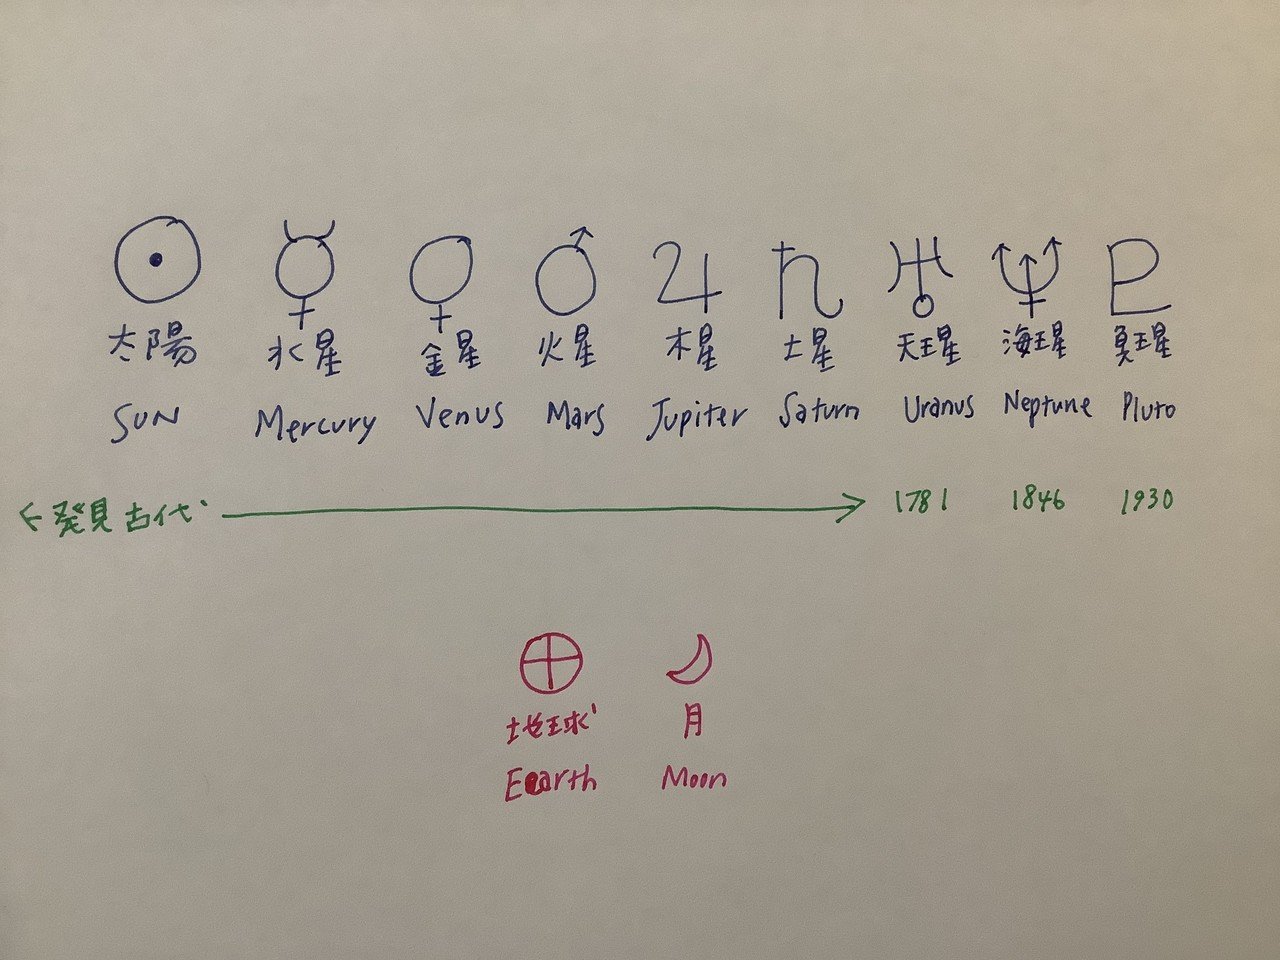 太陽 水星 金星 火星 木星 土星 天王星 海王星 冥王星
SUN Mercury Venus Mars Jupiter Saturn Uranus Neptune Pluto
発見古代 1781 1846 1930
地球 月
Earth Moon